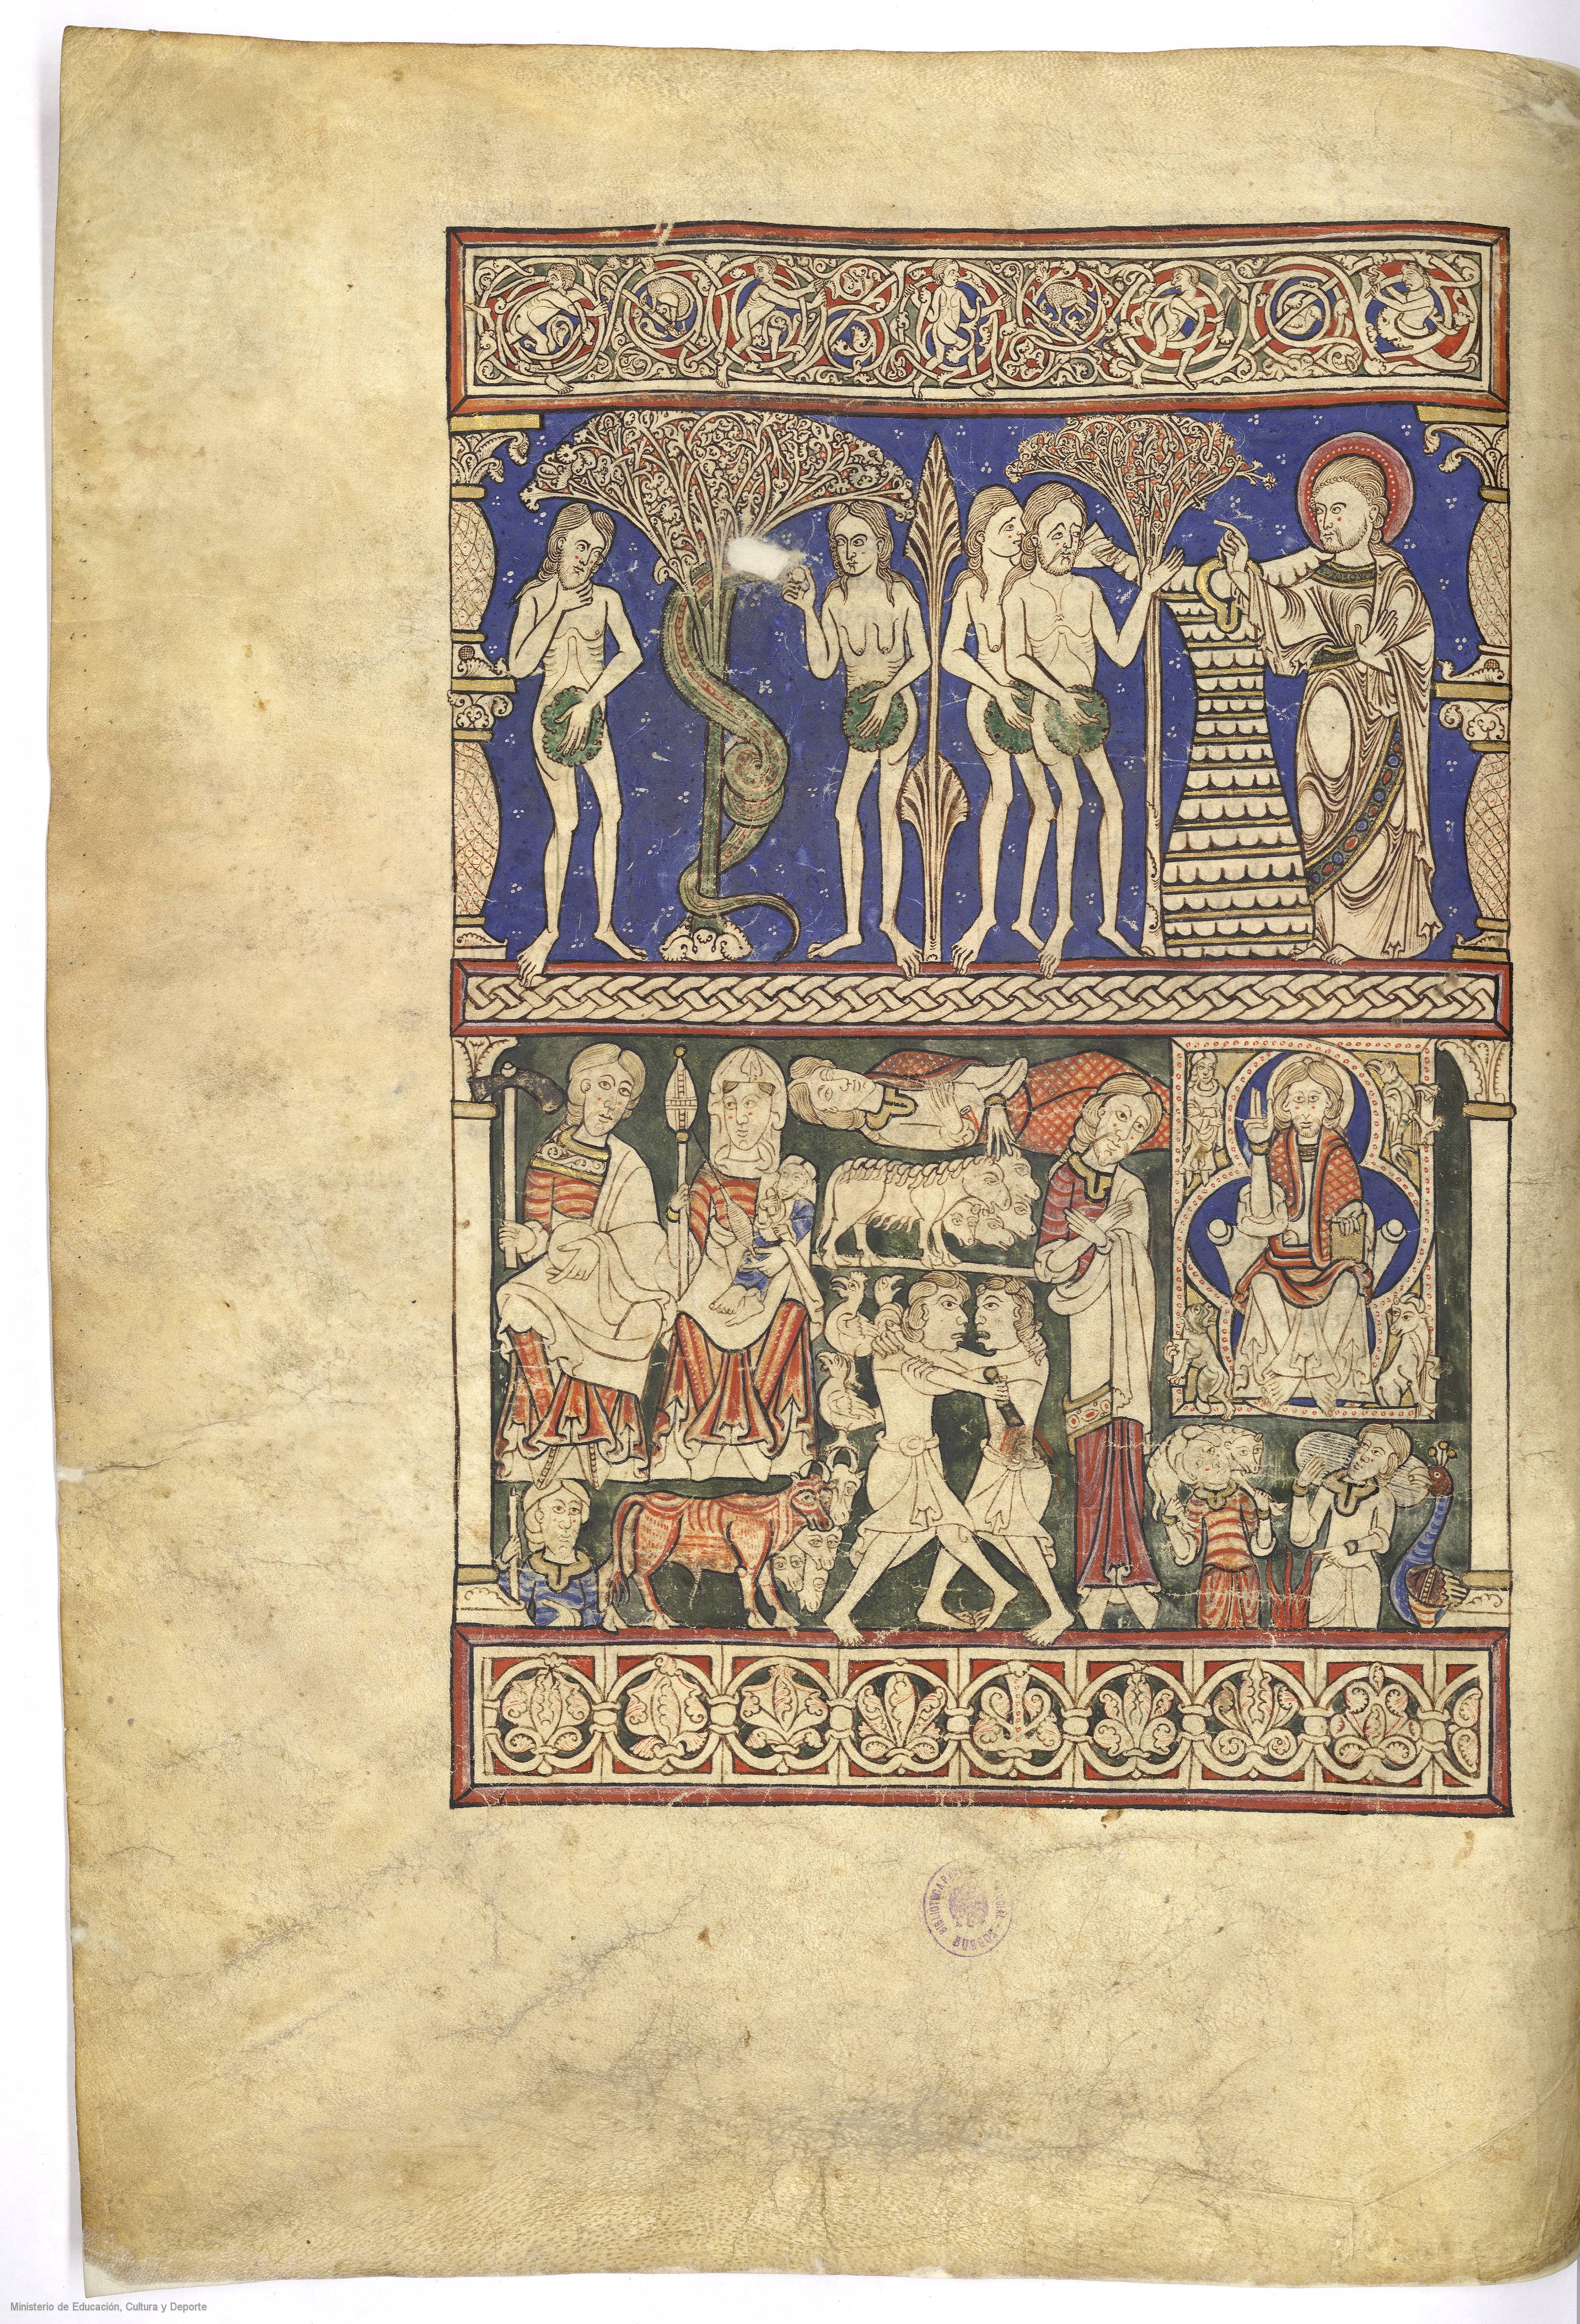 BIBLIOTECA PROVINCIAL
BURGOS
Ministerio de Educación, Cultura y Deporte